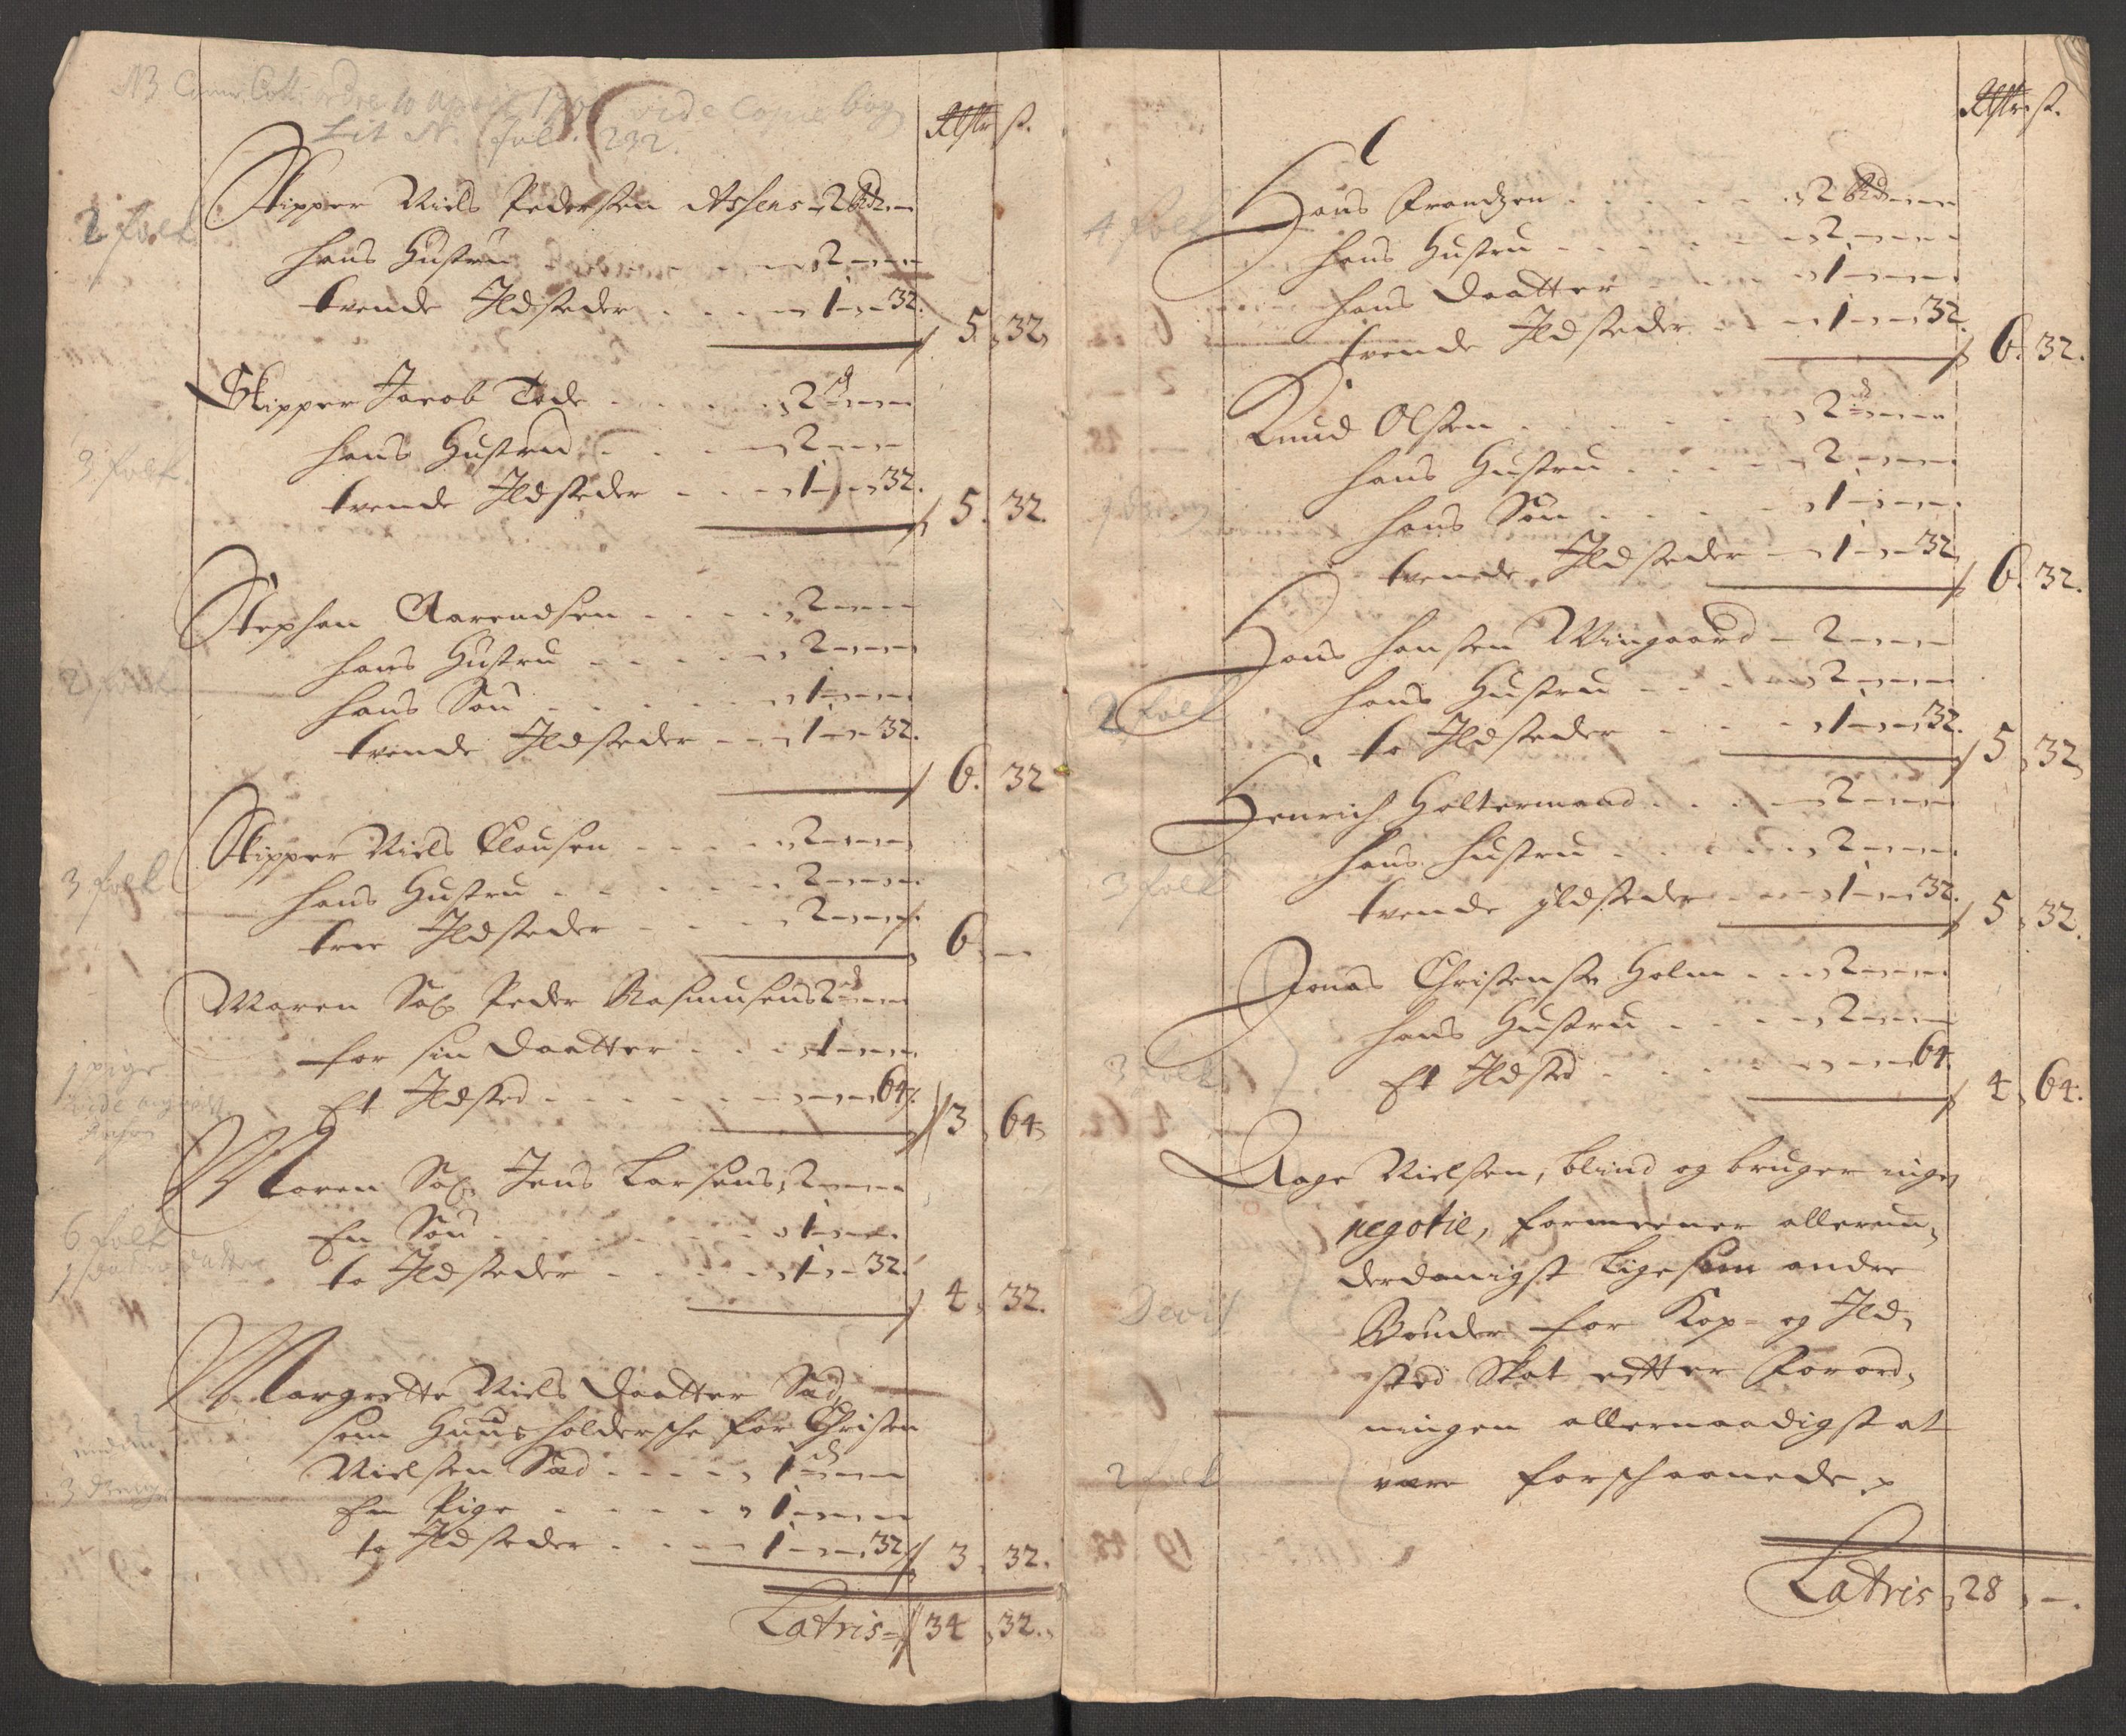 NB
vide Copie bog
Lit N. fol. 232.
Rdlr s.
Skipper Niels Pedersen Assens - 2 Rd
2 folk
hans Hustru 2
tvende Ildsteder 1 - 32.
5. 32.
Skipper Jacob Tode 2
3 folk.
hans Hustru 2
tvende Ildsteder 1 - 32.
5. 32.
Stephen Aarendsen 2
hans Hustru 2
2 folk
hans Søn 1
tvende Ildsteder 1 - 32.
6. 32
Skipper Niels Clausen 2
3 folk
hans Hustru 2
tree Ildsteder 2
6. -
Maren Sal. Peder Rasmusens 2
for sin Daatter 1
1 pige
Et Ildsted 64
3. 64
Maren Sal. Jens Larsens 2
6 folk
En Søn 1
to Ildsteder 1 - 32.
4. 32.
Margrette Niels Daatter Sæd,
som Huusholdersche for Christen
Nielsen Sæd 1
En Pige 1
to Ildsteder 1 - 32
3. 32.
Latris 34. 32.
Rdlr s.
Hans Frandzen 2 Rd
4 folk
hans Hustru 2
hans Daatter 1
tvende Ildsteder 1 - 32.
6. 32.
Knud Olsen 2
hans Hustru 2
hans Søn 1
tvende Ildsteder 1 - 32
6. 32.
Hans Hansen Wingaard - 2
hans Hustru 2
2 folk
to Ildsteder 1 - 32.
5. 32
Henrich Holtermand 2
hans Hustru 2
3 folk
tvende Ildsteder 1 - 32.
5. 32.
Jonas Christense Holm 2
hans Hustru 2
3 folk
Et Ildsted 64.
4. 64.
Aage Nielsen, blind og bruger ingen
negotie, formeener allerun,
derdanigst ligesom andre
Bønder for Kop- og Ild,
sted Skat efter Forord,
ningen allernaadigst at
2 folk
være forschaanede.
Latris 28. -.